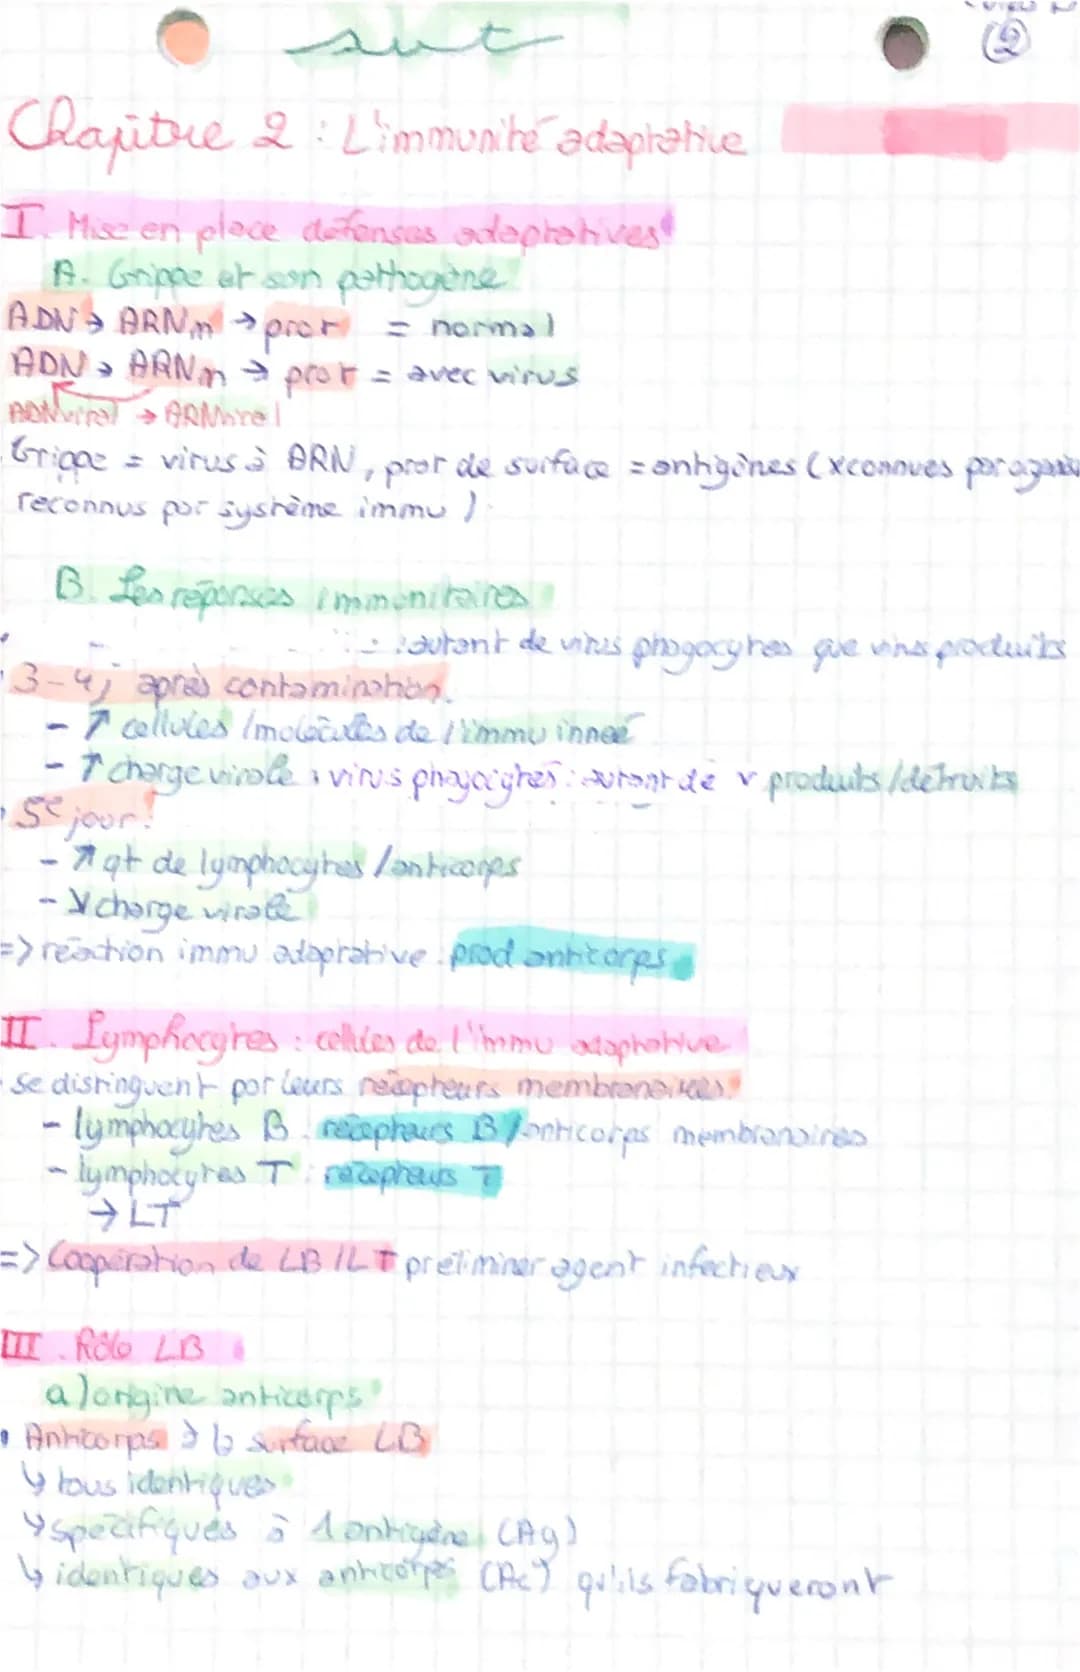 svt
2
Chapitre 2 : L'immunité adaptative
I. Mise en place défenses adaptatives
A. Grippe et son pathogène
ADN → ARNm → prot = normal
ADN → ARNm → prot = avec virus
ADNviral → ARNviral
Grippe = virus à ARN, prot de surface = antigènes (xconnues par
reconnus par système immu)
B. Les réponses immunitaires
: autant de virus phagocytés que virus produits
3-4j après contamination.
- ↗ cellules /molécules de l'immu innée
- ↑ charge virale, virus phagocytés : autant de v produits/détruits
5e jour :
- ↗ qt de lymphocytes /anticorps
- ↘ charge virale
=> réaction immu adaptative : prod anticorps
II. Lymphocytes : cellules de l'immu adaptative
se distinguent par leurs récepteurs membranaires
- lymphocytes B : récepteurs B/anticorps membranaires
- lymphocytes T : récepteurs T
→ LT
=> Coopération de LB / LT pr éliminer agent infectieux
III. Rôle LB
a) origine anticorps
• Anticorps à la surface LB
↳ tous identiques
↳ spécifiques à 1 antigène (Ag)
↳ identiques aux anticorps (Ac) qu'ils fabriqueront